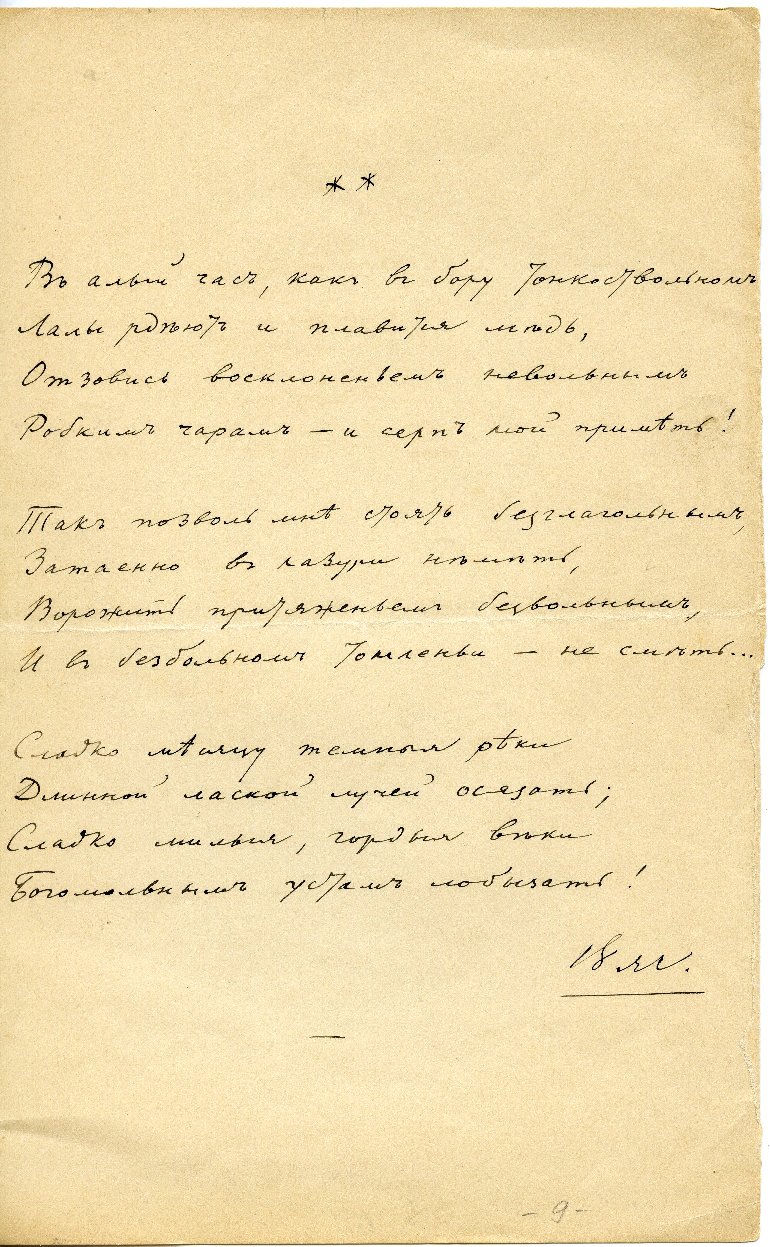 * *
Въ алый часъ, какъ въ бору тонкоствольномъ
Лалы рдѣютъ и плавится мѣдь,
Отзовись восклоненьемъ невольнымъ
Робкимъ чарамъ – и серпъ мой примѣть!
Такъ позволь мнѣ стоять безглагольнымъ,
Затаенно въ лазури нѣмѣть,
Ворожить притяженьемъ безвольнымъ,
И въ безбольномъ томленьи – не смѣть...
Сладко мѣсяцу темныя рѣки
Длинной лаской лучей осязать;
Сладко милыя, гордыя вѣки
Богомольнымъ устамъ лобызать!
18
– 9 –